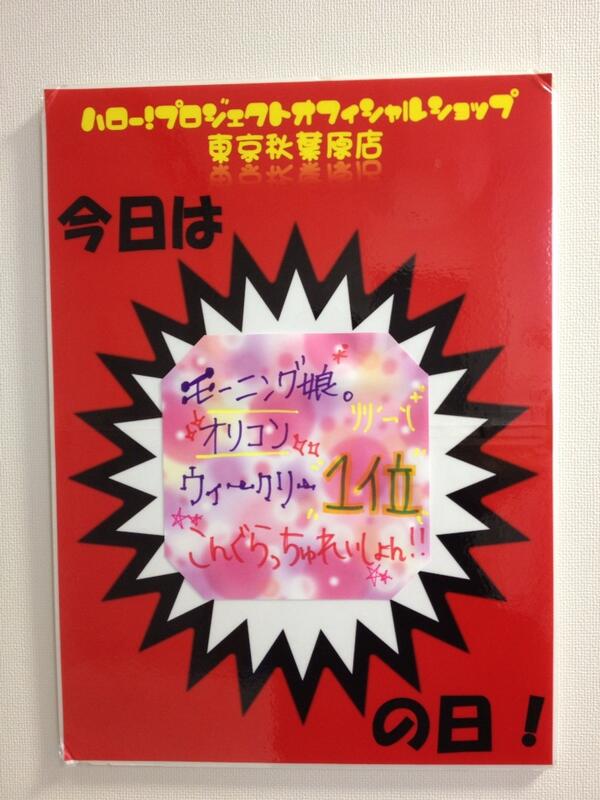 ハロー!プロジェクトオフィシャルショップ
東京秋葉原店
今日は
モーニング娘。
オリコン
ウィークリー 1位
こんぐらっちゅれいしょん!!
の日!